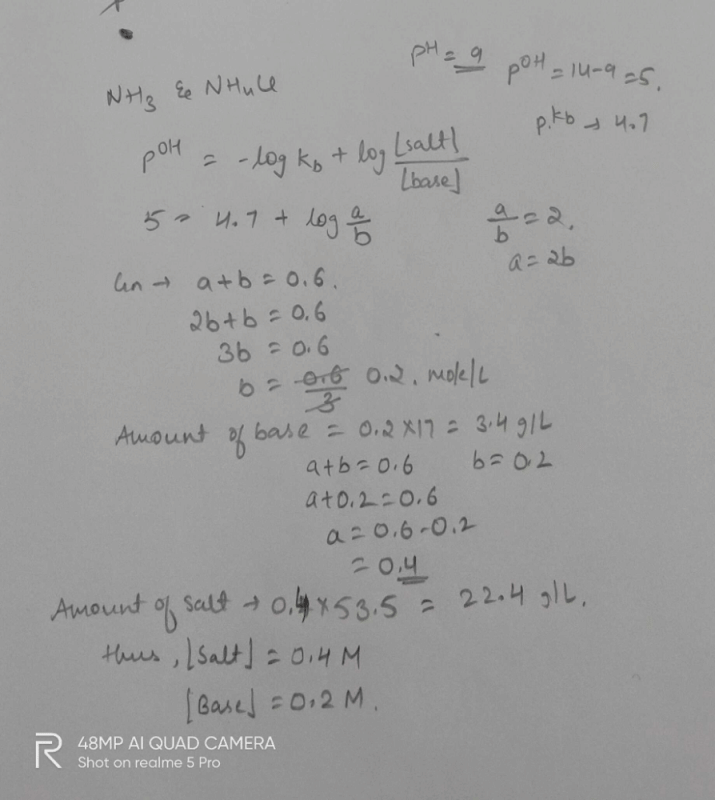 pH = 9 pOH = 14-9 = 5.
NH3 & NH4Cl
p.kb → 4.7
pOH = -log Kb + log [salt]/[base]
5 = 4.7 + log a/b a/b = 2.
a = 2b
Gn → a+b = 0.6.
2b+b = 0.6
3b = 0.6
b = 0.6/3 0.2. mole/L
Amount of base = 0.2×17 = 3.4 g/L
a+b = 0.6 b = 0.2
a+0.2 = 0.6
a = 0.6-0.2
= 0.4
Amount of salt → 0.4×53.5 = 22.4 g/L.
thus, [Salt] = 0.4 M
[Base] = 0.2 M.
48MP AI QUAD CAMERA
Shot on realme 5 Pro